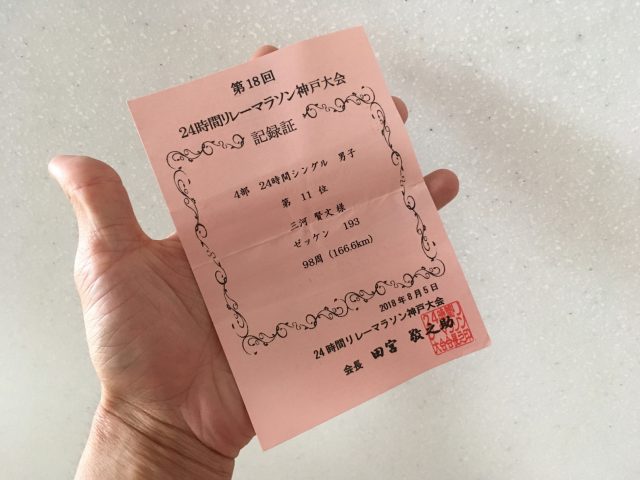 第18回
24時間リレーマラソン神戸大会
記録証
4部 24時間シングル 男子
第 11 位
三河 賢文 様
ゼッケン 193
98周 (166.6km)
2018年8月5日
24時間リレーマラソン神戸大会
会長 田宮 敬之助